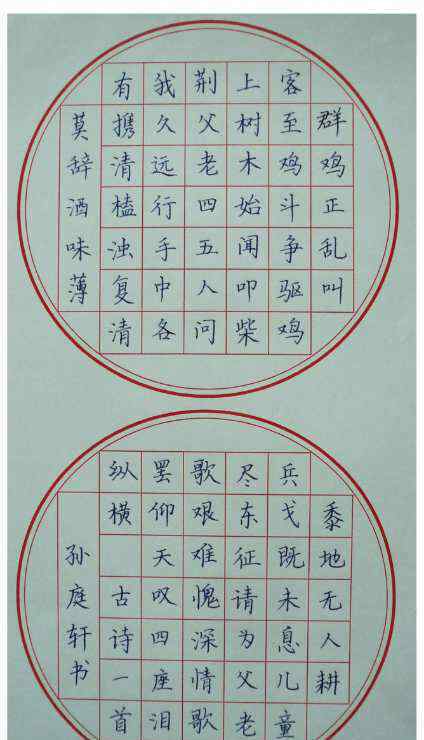 群鸡正乱叫
客至鸡斗争驱鸡
上树木始闻叩柴
荆父老四五人问
我久远行手中各
有携清榼浊复清
莫辞酒味薄
黍地无人耕
兵戈既未息儿童
尽东征请为父老
歌艰难愧深情歌
罢仰天叹四座泪
纵横 古诗一首
孙庭轩书